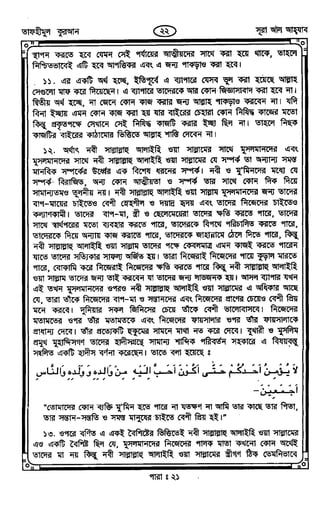 তাফহীমুল কুরআন
২২
সূরা আল আহযাব
স্থাপন করতে হবে যেমন সেই পর্যায়ের আত্মীয়দের সাথে করা হয়ে থাকে, তাহলে
নিশ্চিতভাবেই এটি হবে আপত্তিকর এবং এ জন্য পাকড়াও করা হবে।
১১. এর একটি অর্থ হচ্ছে, ইতিপূর্বে এ ব্যাপারে যেসব ভুল করা হয়েছে আল্লাহ
সেগুলো মাফ করে দিয়েছেন। এ ব্যাপারে তাদেরকে আর কোন জিজ্ঞাসাবাদ করা হবে না।
দ্বিতীয় অর্থ হচ্ছে, না জেনে কোন কাজ করার জন্য আল্লাহ পাকড়াও করবেন না। যদি
বিনা ইচ্ছায় এমন কোন কাজ করা হয় যার বাইরের চেহারা কোন নিষিদ্ধ কাজের মতো
কিন্তু প্রকৃতপক্ষে সেখানে সেই নিষিদ্ধ কাজটি করার ইচ্ছা ছিল না। তাহলে নিছক
কাজটির বাইরের কাঠামোর ভিত্তিতে আল্লাহ শাস্তি দেবেন না।
১২. অর্থাৎ নবী সাল্লাল্লাহু আলাইহি ওয়া সাল্লামের সাথে মুসলমানদের এবং
মুসলমানদের সাথে নবী সাল্লাল্লাহু আলাইহি ওয়া সাল্লামের যে সম্পর্ক তা অন্যান্য সমস্ত
মানবিক সম্পর্কের উর্ধের এক বিশেষ ধরনের সম্পর্ক। নবী ও মু'মিনদের মধ্যে যে
সম্পর্ক বিরাজিত, অন্য কোন আত্মীয়তা ও সম্পর্ক তার সাথে কোন দিক দিয়ে
সামান্যতমও তুলনীয় নয়। নবী সাল্লাল্লাহু আলাইহি ওয়া সাল্লাম মুসলমানদের জন্য তাদের
বাপ-মায়ের চাইতেও বেশী স্নেহশীল ও দয়ার্দ্র হৃদয় এবং তাদের নিজেদের চাইতেও
কল্যাণকামী। তাদের বাপ-মা, স্ত্রী ও ছেলেমেয়েরা তাদের ক্ষতি করতে পারে, তাদের
সাথে স্বার্থপরের মতো ব্যবহার করতে পারে, তাদেরকে বিপথে পরিচালিত করতে পারে,
তাদেরকে দিয়ে অন্যায় কাজ করাতে পারে, তাদেরকে জাহান্নামে ঠেলে দিতে পারে, কিন্তু
নবী সাল্লাল্লাহু আলাইহি ওয়া সাল্লাম তাদের পক্ষে কেবলমাত্র এমন কাজই করতে পারেন
যাতে তাদের সত্যিকার সাফল্য অর্জিত হয়। তারা নিজেরাই নিজেদের পায়ে কুড়াল মারতে
পারে, বোকামি করে নিজেরাই নিজেদের ক্ষতি করতে পারে কিন্তু নবী সাল্লাল্লাহু আলাইহি
ওয়া সাল্লাম তাদের জন্য তাই করবেন যা তাদের জন্য লাভজনক হয়। আসল ব্যাপার যখন
এই তখন মুসলমানদের ওপরও নবী সাল্লাল্লাহু আলাইহি ওয়া সাল্লামের এ অধিকার আছে
যে, তারা তাঁকে নিজেদের বাপ-মা ও সন্তানদের এবং নিজেদের প্রাণের চেয়েও বেশী প্রিয়
মনে করবে। দুনিয়ার সকল জিনিসের চেয়ে তাঁকে বেশী ভালোবাসবে। নিজেদের
মতামতের ওপর তাঁর মতামতকে এবং নিজেদের ফায়সালার ওপর তাঁর ফায়সালাকে
প্রাধান্য দেবে। তাঁর প্রত্যেকটি হুকুমের সামনে মাথা নত করে দেবে। বুখারী ও মুসলিম
প্রমুখ মুহাদ্দিসগণ তাদের হাদীসগ্রন্থে সামান্য শাব্দিক পরিবর্তন সহকারে এ বিষয়বস্তু
সম্বলিত একটি হাদীস বর্ণনা করেছেন। তাতে বলা হয়েছে ঃ
لَا يُؤْمِنُ أَحَدُكُمْ حَتَّى أَكُونَ أَحَبَّ إِلَيْهِ مِنْ وَالِدِهِ وَوَلَدِهِ وَالنَّاسِ
أَجْمَعِينَ-
"তোমাদের কোন ব্যক্তি মু'মিন হতে পারে না যতক্ষণ না আমি তার কাছে তার পিতা,
তার সন্তান-সন্ততি ও সমস্ত মানুষের চাইতে বেশী প্রিয় হই।"
১৩. ওপরে বর্ণিত এ একই বৈশিষ্টের ভিত্তিতেই নবী সাল্লাল্লাহু আলাইহি ওয়া সাল্লামের
এও একটি বৈশিষ্ট ছিল যে, মুসলমানদের নিজেদের পালক মাতা কখনো কোন অর্থেই
তাদের মা নয় কিন্তু নবী সাল্লাল্লাহু আলাইহি ওয়া সাল্লামের স্ত্রীগণ ঠিক তেমনিভাবে
পারা ঃ ২১